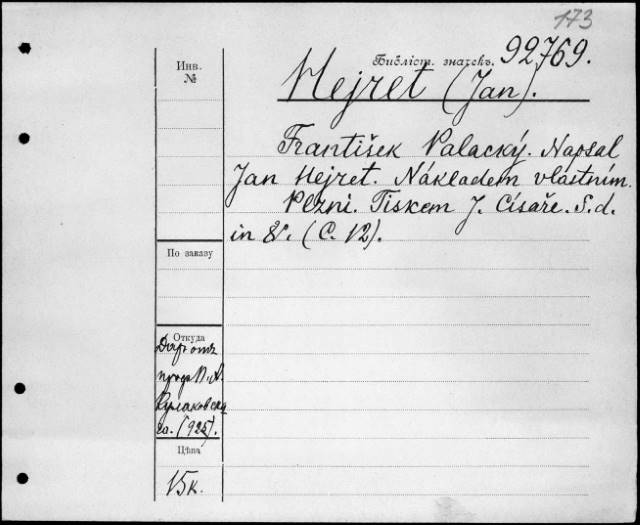 173
Библіот. значекъ. 92769.
Инв.
№
Hejret (Jan).
František Palacký. Napsal
Jan Hejret. Nákladem vlastním.
Plzni. Tiskem J. Císaře. S. d.
in 8°. (C. 12).
По заказу
Откуда
Даръ отъ
проф. П. А.
Кулаковска
го. (925).
Цѣна
15 к.